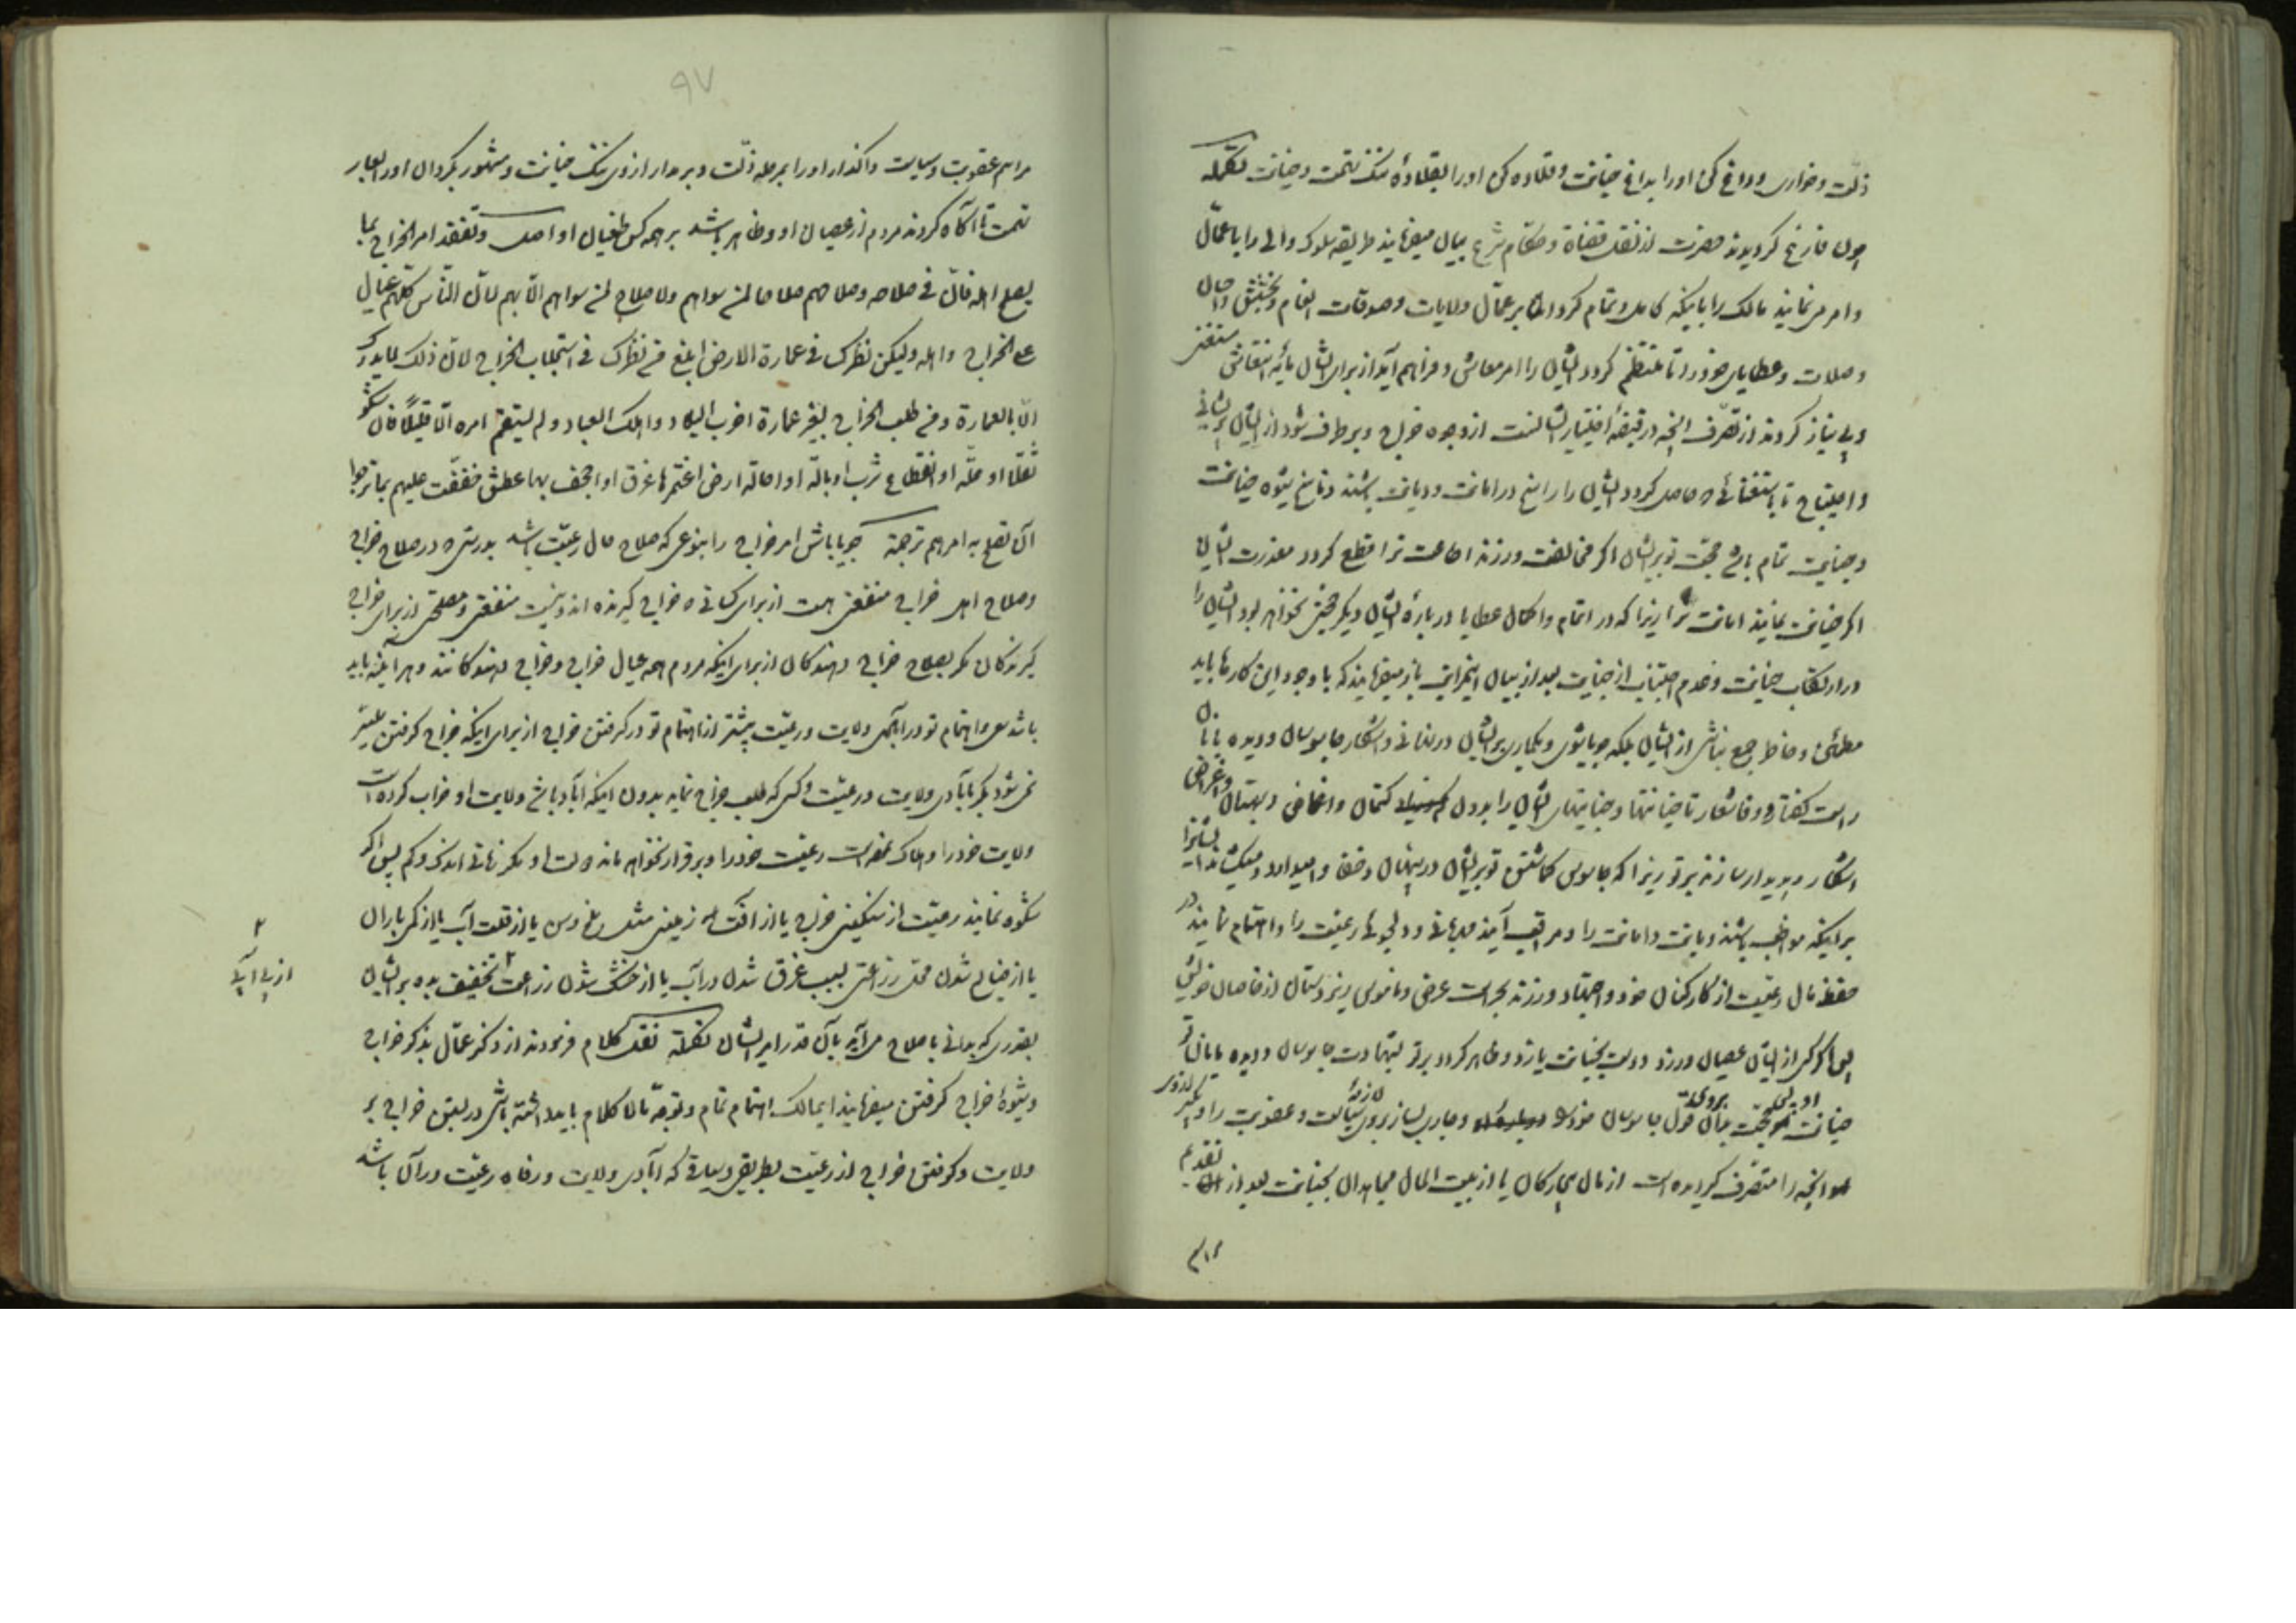 ذلّت و خواری و داغ کن او را بداغ خیانت و قلاده کن او را بقلادهٔ ننگ تهمت و خیانت تکمله
چون فارغ کردیدند حضرت از نقل قضاة و حکّام شرع بیان میفرمایند طریقه سلوک والی را با عمّال
و امر می نمایند مالک را باینکه کامل و تمام کرداند بر عمّال ولایات و صدقات انعام و بخشش و احسان
و صلات و عطایای خود را تا منتظم کردد ایشان را امر معاش و فراهم آید از برای ایشان مایه انتعاش مستغنی
و بی نیاز کردند از تصرّف آنچه در قبضهٔ اختیار ایشانست از وجوه خراج و برطرف شود از ایشان پریشانی
و احتیاج تا باستغنائی که حاصل کردد ایشان را راسخ در امانت و دیانت باشند و ناسخ شیوه خیانت
و جنایت تمام باشد حجّت تو بر ایشان اکر مخالفت ورزند اطاعت ترا قطع کردد معذرت ایشان
اکر خیانت نمایند امانت ترا زیرا که در اتمام و اکمال عطایا در بارهٔ ایشان دیکر حجّتی نخواهد بود ایشان را
در ارتکاب خیانت و عدم اجتناب از جنایت بعد از بیان این مراتب باز میفرمایند که با وجود این کارها باید
مطمئن و خاطر جمع نباشی از ایشان بلکه جویا شوی و بکماری بر ایشان در نهانی و آشکار جاسوسان و دیده بانان
راست کفتار و وفا شعار تا خیانتها و جنایتهای ایشان را بدون کتمان و اغماض و بهتان و اغراض
آشکار و پدیدار سازند بر تو زیرا که جاسوس کماشتن تو بر ایشان در پنهان و خفا وامیدارد و میکشاند ایشانرا
بر اینکه مواظب باشند دیانت و امانت را و مراقب آیند مهربانی و دلجوئی رعیّت را و اهتمام نمایند در
حفظ مال رعیّت از کارکنان خود و اجتهاد ورزند بحراست عرض و ناموس زیردستان از قاصدان خویش
پس اکر کسی از ایشان عصیان ورزد و دست بخیانت یازد و ظاهر کردد بر تو بشهادت جاسوسان و دیده بانان تو
خیانت او پس حجّت بدان قول جاسوسان خود را و جاری بساز بر وی تازیانه سیاست و عقوبت را و بکیر از وی
آنچه را متصّرف کردیده است از مال بیچارکان یا از بیت المال مجاهدان بخیانت بعد از تقدیم
۹۷
مراسم عقوبت و سیاست واکذار او را بمرحله ذلّت و بر مدار از وی ننک خیانت و مشهور بکردان او را بعار
تهمت تا آکاه کردند مردم از عصیان او و ظاهر باشد بر همه کس طغیان او اصل و تفقّد امر الخراج بما
یصلح اهله فانّ فی صلاحه و صلاحهم صلاحا لمن سواهم ولا صلاح لمن سواهم الّا بهم لانّ النّاس کلّهم عیال
علی الخراج و اهله ولیکن نظرک فی عمارة الارض ابلغ من نظرک فی استجلاب الخراج لانّ ذلک لا یدرک
الّا بالعمارة و من طلب الخراج بغیر عمارة اخرب البلاد و اهلک العباد و لم یستقم امره الّا قلیلاً فان شکوا
ثقلا او علّة او انقطاع شرب او بالّة او احالة ارض اغتمرها غرق او اجحف بها عطش خفّفت علیهم بما ترجوا
ان یصلح به امرهم ترجمة جویا باش امر خراج را بنوعی که صلاح حال رعیّت باشد بدرستی که در صلاح خراج
و صلاح اهل خراج منفعتی هست از برای کسانی که خراج کیرنده اند و نیست منفعتی و مصلحتی از برای خراج
کیرندکان مکر بصلاح خراج دهندکان از برای اینکه مردم همه عیال خراج و خراج دهندکانند و هر آینه باید
باشد سعی و اهتمام تو در آبادی ولایت و رعیّت بیشتر از اهتمام تو در کرفتن خراج از برای اینکه خراج کرفتن میسّر
نمی شود مکر بآبادی ولایت و رعیّت و کسی که طلب خراج نماید بدون اینکه آباد باشد ولایت او خراب کرده است
ولایت خود را و هلاک نموده است رعیّت خود را و برقرار نخواهد ماند دولت او مکر زمانی اندک و کم پس اکر
شکوه نمایند رعیّت از سنکینی خراج یا از آفت زمینی مثل ملخ و سن یا از قلّت آب یا از کمی باران
یا از ضایع شدن محلّ زراعتی بسبب غرق شدن در آب یا از خشک شدن زراعت ۲ تخفیف بده بر ایشان
بقدری که بدانی باصلاح می آید بآن قدر امر ایشان تکملة نقل کلام فرمودند از ذکر عمّال بذکر خراج
و شیوهٔ خراج کرفتن میفرمایند ای مالک اهتمام تمام و توجّه مالا کلام باید داشته باشی در بستن خراج بر
ولایت و کرفتن خراج از رعیّت بطریقی و سیاقی که آبادی ولایت و رفاه رعیّت در آن باشد
۲
از بی آبی